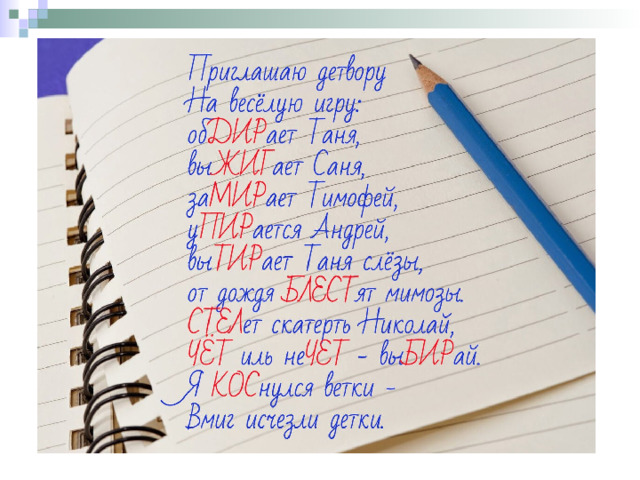 Приглашаю детвору
На весёлую игру:
обДИРает Таня,
выЖИГает Саня,
заМИРает Тимофей,
уПИРается Андрей,
выТИРает Таня слёзы,
от дождя БЛЕСТят мимозы.
СТЕЛет скатерть Николай,
ЧЁТ иль неЧЕТ - выБИРай.
Я КОСнулся ветки -
Вмиг исчезли детки.